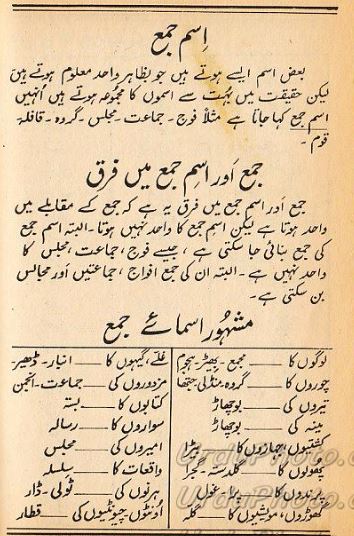 اسم جمع
بعض اسم ایسے ہوتے ہیں جو بظاہر واحد معلوم ہوتے ہیں
لیکن حقیقت میں بہت سے اسموں کا مجموعہ ہوتے ہیں انہیں
اسم جمع کہا جاتا ہے مثلاً فوج - جماعت - مجلس - گروہ - قافلہ
قوم -
جمع اور اسم جمع میں فرق
جمع اور اسم جمع میں فرق یہ ہے کہ جمع کے مقابلے میں
واحد ہوتا ہے لیکن اسم جمع کا واحد نہیں ہوتا - البتہ اسم جمع
کی جمع بنائی جا سکتی ہے ، جیسے فوج ، جماعت ، مجلس کا
واحد نہیں ہے - البتہ ان کی جمع افواج ، جماعتیں اور مجالس
بن سکتی ہے -
مشہور اسمائے جمع
لوگوں کا — مجمع - بھیڑ - ہجوم
چوروں کا — گروہ - منڈلی - جتھا
تیروں کی — بوچھاڑ
مینہ کی — بوچھاڑ
کشتیوں، جہازوں کا — بیڑا
پھولوں کا — گلدستہ - گجرا
پرندوں کا — پرا - غول
گھوڑوں، مویشیوں کا — گلہ
غلے، گیہوں کا — انبار - ڈھیر
مزدوروں کی — جماعت - انجمن
کتابوں کا — بستہ
سواروں کا — رسالہ
امیروں کی — مجلس
واقعات کا — سلسلہ
ہرنوں کی — ٹولی - ڈار
اونٹوں - چیونٹیوں کی — قطار
UrduPhoto.c
UrduPhoto.c